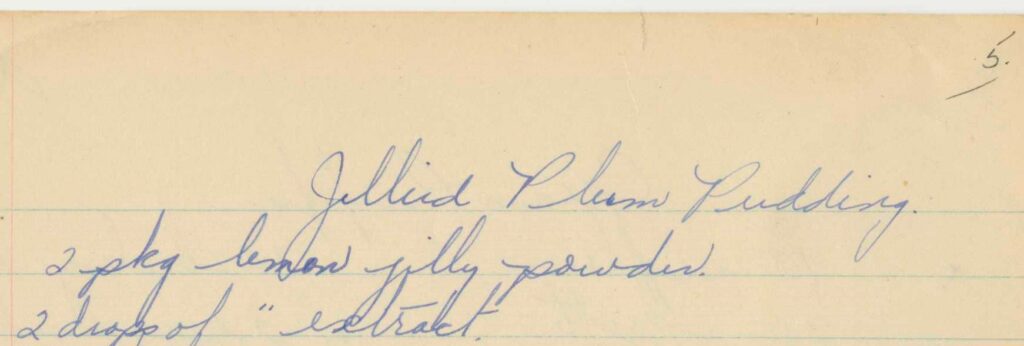 5.
Jellied Plum Pudding.
2 pkg lemon jelly powder.
2 drops of " extract.